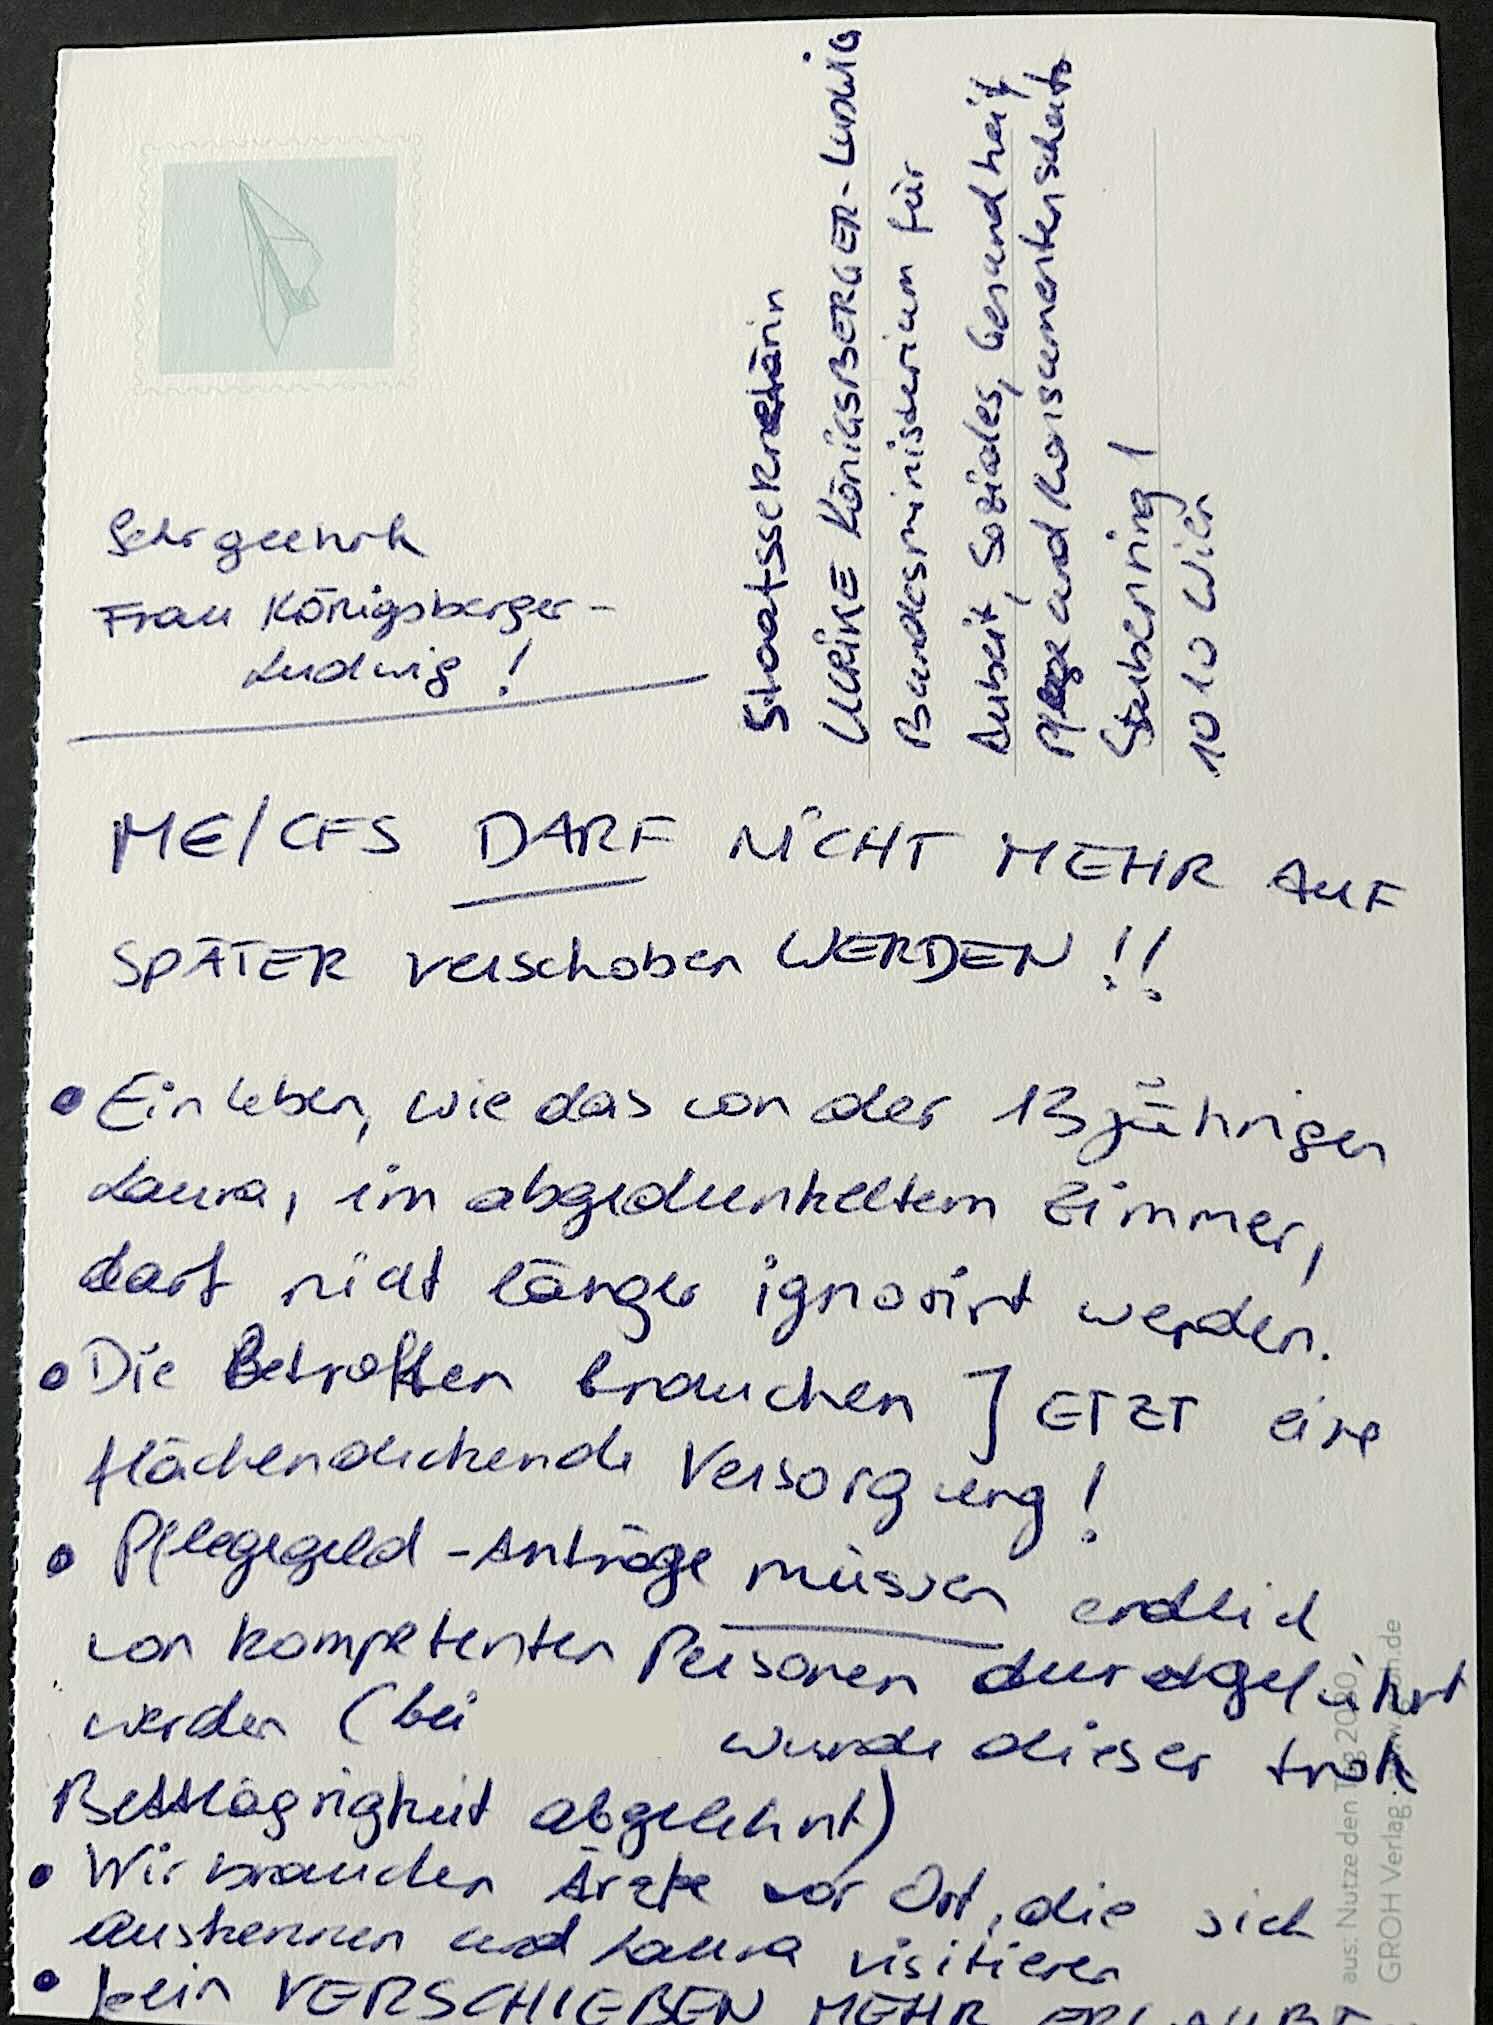 Staatssekretärin
ULRIKE KÖNIGSBERGER-LUDWIG
Bundesministerium für
Arbeit, Soziales, Gesundheit,
Pflege und Konsumentenschutz
Stubenring 1
1010 Wien
Sehr geehrte
Frau Königsberger-
Ludwig!
ME/CFS DARF NICHT MEHR AUF
SPÄTER verschoben WERDEN!!
• Ein Leben, wie das von der 13jährigen
Laura, im abgedunkeltem Zimmer,
darf nicht länger ignoriert werden.
• Die Betroffen brauchen JETZT eine
flächendeckende Versorgung!
• Pflegegeld-Anträge müssen endlich
von kompetenten Personen durchgeführt
werden (bei wurde dieser trotz
Bettlägrigkeit abgelehnt)
• Wir brauchen Ärzte vor Ort, die sich
auskennen und Laura visitieren
• kein VERSCHIEBEN MEHR ERLAUBT
aus: Nutze den Tag 2020
GROH Verlag